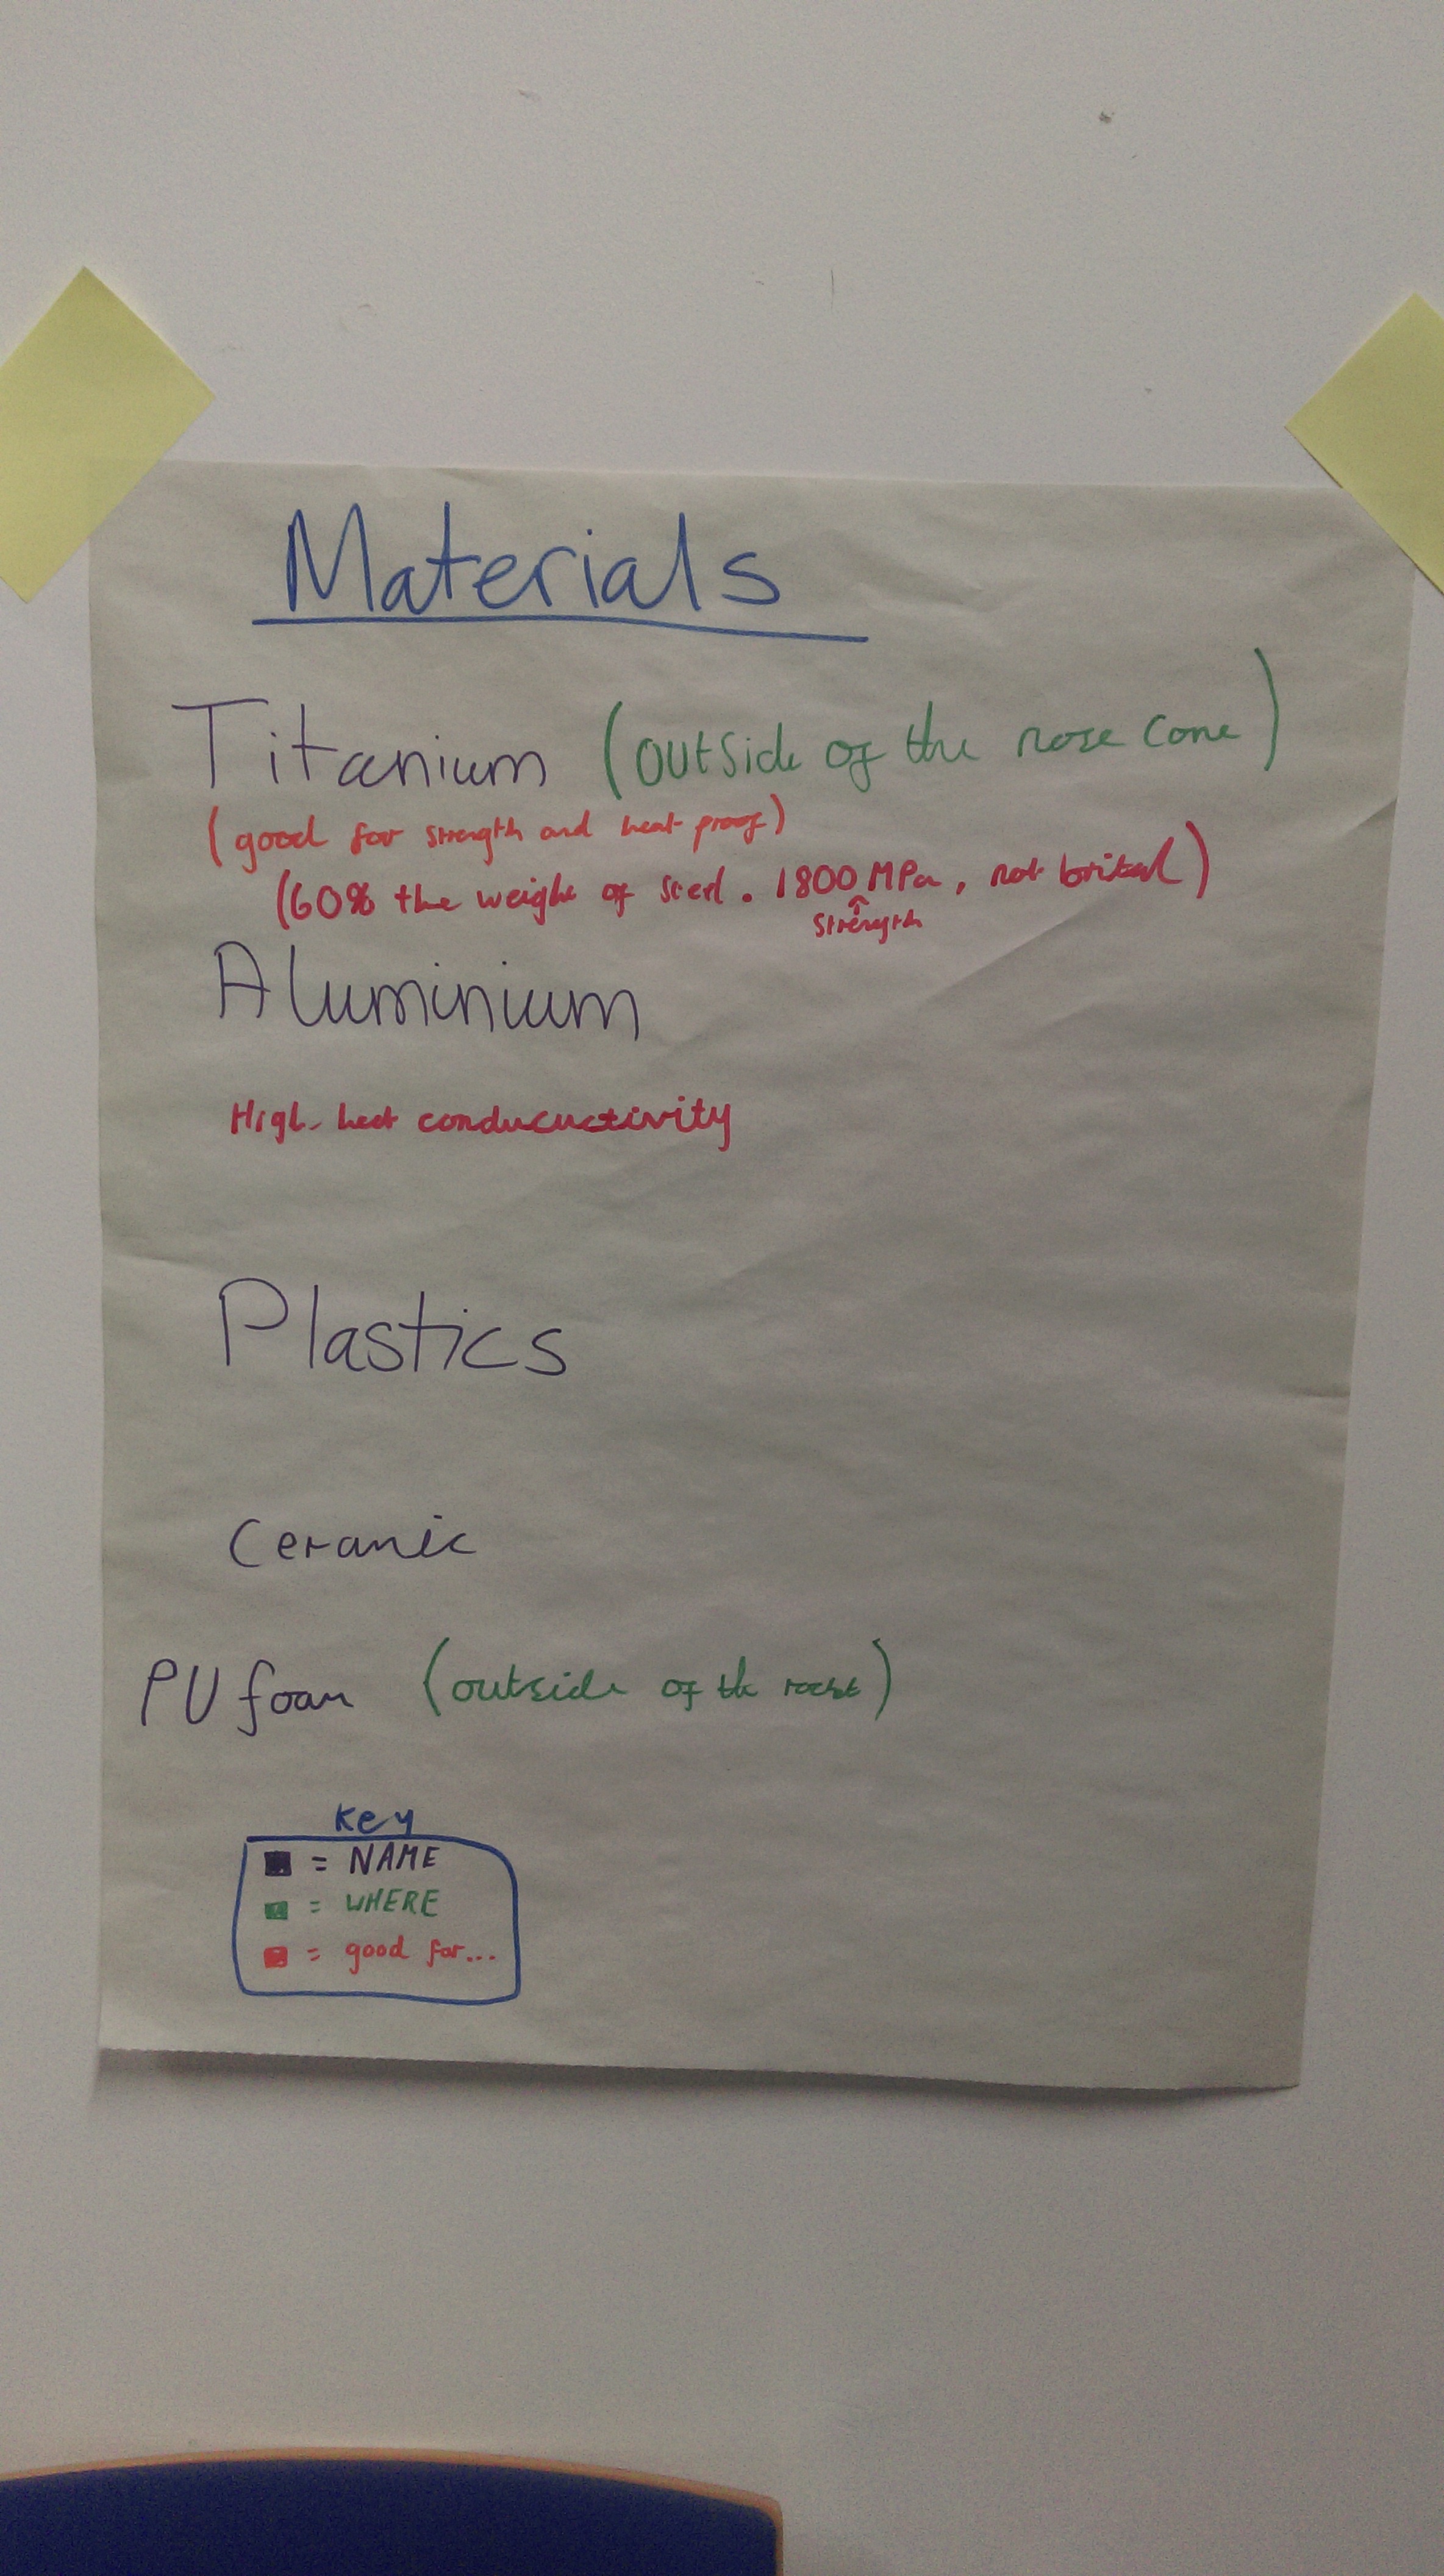 Materials
Titanium (outside of the nose cone)
(good for strength and heat proof)
(60% the weight of steel. 1800 MPa, not brital)
strength
Aluminium
High heat conducuctivity
Plastics
Ceramic
PU foam (outside of the rocket)
Key
= NAME
= WHERE
= good for...